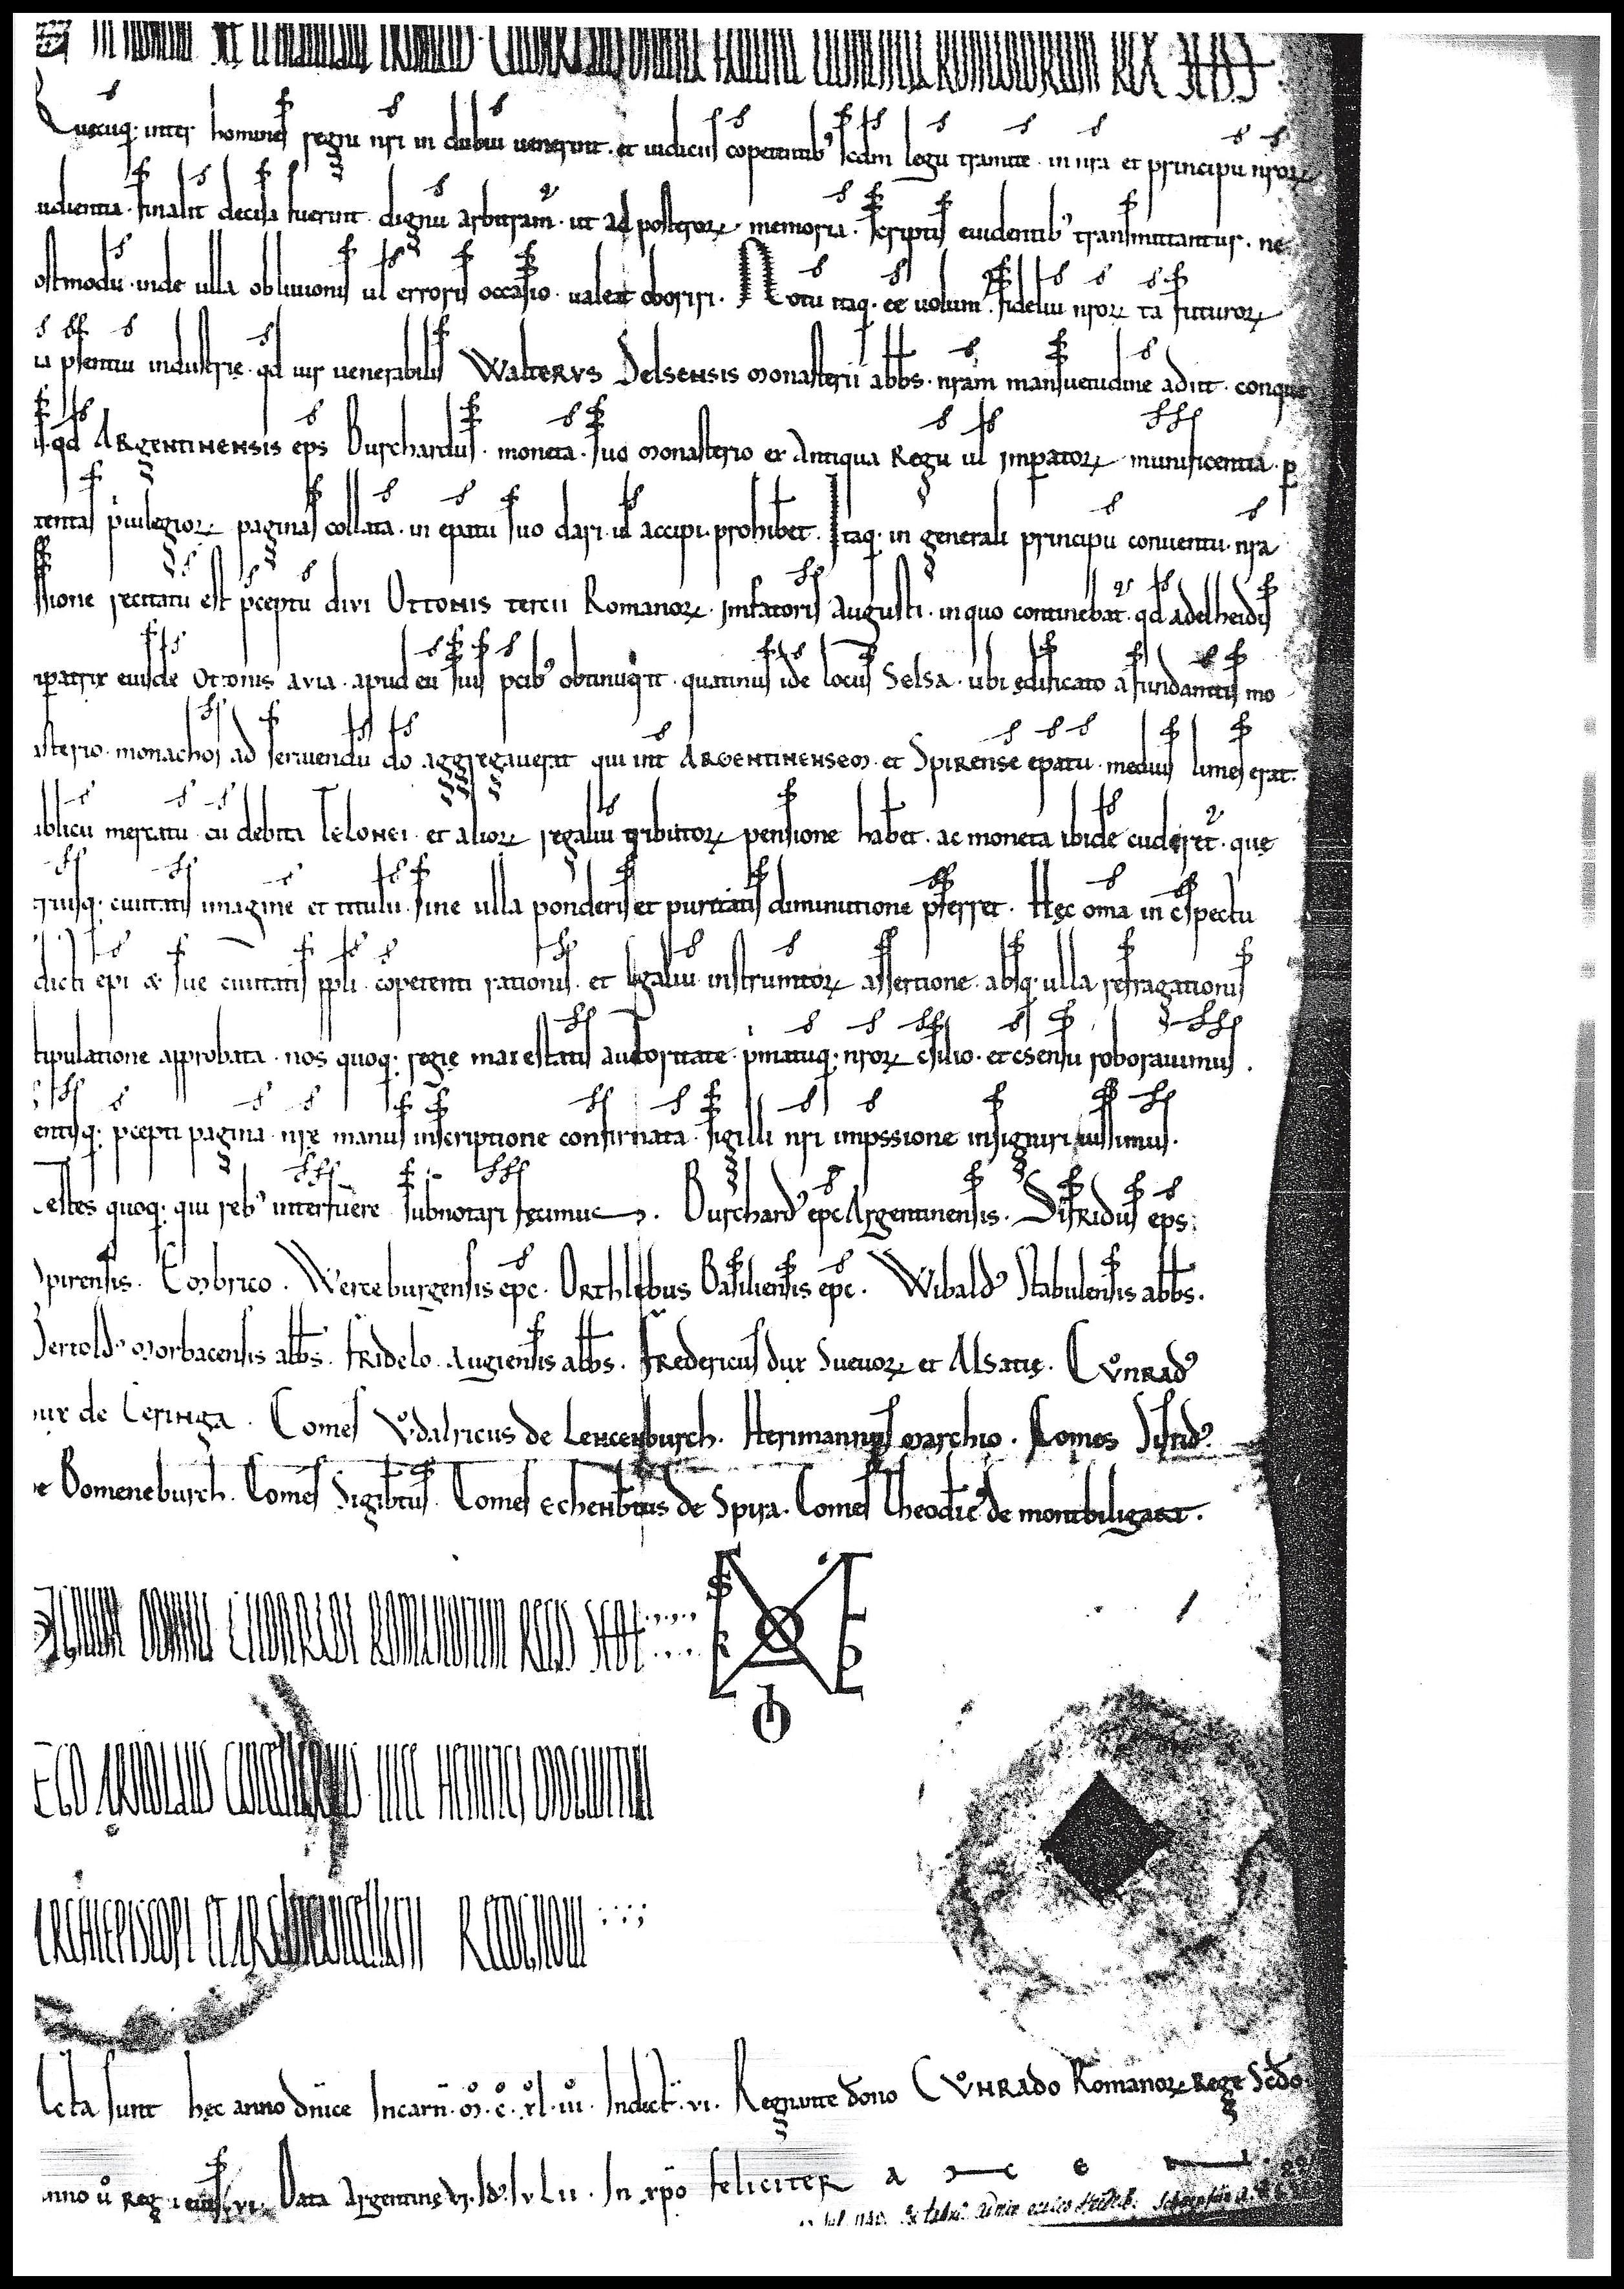 IN NOMINE SCE ET INDIVIDUE TRINITATIS. CUONRADUS DIVINA FAVENTE CLEMENTIA ROMANORUM REX SCDS
Quecuq; inter homines regni nri in dubiu uenerint. et iudiciis cōpetentib' scdm legū tramite. in nra et principū nrorꝝ
udientia. finalit decisa fuerint. dignū arbitram̄. ut ad posterorꝝ memoria. scriptis euidentib' transmittantur. ne
ostmodū. inde ulla obliuionis ul erroris occasio. ualeat oboriri. Notū itaq. ee uolum'. fideliū nrorꝝ tā futurorꝝ
ū psentiū industrie. qd uir uenerabilis WALTERVS SELSENSIS monasterii abbs. nram mansuetudine adiit. conque
s. qd ARGENTINENSIS eps Burchardus. moneta. suo monasterio ex Antiqua Regū ul imperatorꝝ munificentia. p
tentas priuilegiorꝝ paginas collata. in epatu suo dari. ul accipi. prohibet. Itaq. in generali principū conuentu. nra
ssione recitatū est pceptū divi OTTONIS tercii Romanorꝝ. imperatoris Augusti. in quo continebat'. qd adelheidis
ipatrix eiusde Ottonis avia. apud eū suis pcib' obtinuerit. quatinus ide locus Selsa. ubi edificato a fundamtis mo
asterio. monachos ad seruiendū do aggregauerat qui int ARGENTINENSEM. et SPIRENSE epatū. medius limes erat.
ublicū mercatū. cū debita Telonei. et aliorꝝ regaliū tributorꝝ pensione haberet. ac moneta ibide cuderet'. que
triusq; ciuitatis imagine et titulū. sine ulla ponderis et puritatis diminutione pferret. Hęc oma in cspectu
dicti epi & sue ciuitatis ppli. cōpetenti rationis. et legaliū instrumtorꝝ assertione. absq. ulla refragationis
tipulatione approbata. nos quoq; regię maiestatis auctoritate. pmatuq; nrorꝝ csilio. et csensu roborauimus.
entisq; pcepti pagina. nrę manus inscriptione confirmata. sigilli nri impssione insigniri iussimus.
estes quoq; qui reb' interfuere subnotari fecimus. Burchard' epc Argentinensis. Sifridus eps.
Spirensis. Embrico. Werceburgensis epc. Orthlebus Basiliensis epc. Wibald' Stabulensis abbs.
Bertold' Morbacensis abbs. Fridelo. Augiensis abbs. Fredericus dux Sueuorꝝ et Alsatię. Cvͦnrad'
dux de Ceringa. Comes Vͦdalricus de Lencenburch. Herimannus marchio. Comes Sifrid'.
e Bomeneburch. Comes Sigibtus. Comes Echenbtus de Spira. Comes Theodic' de montbiligart.
SIGNUM DOMNI CUONRADI ROMANORUM REGIS SCDI
EGO ARNOLDUS CANCELLARIUS. VICE HEINRICI MOGUNTINI
ARCHIEPISCOPI ET ARCHICANCELLARII RECOGNOVI
Acta sunt hęc anno dnice Incarn̄. M. C. XL. III. Indict. VI. Regnante dono CVͦNRADO Romanorꝝ Rege Scdo.
nno ū regni eius. VI. Data Argentinę VI. Id'. IVLII. In xpo feliciter A M E N